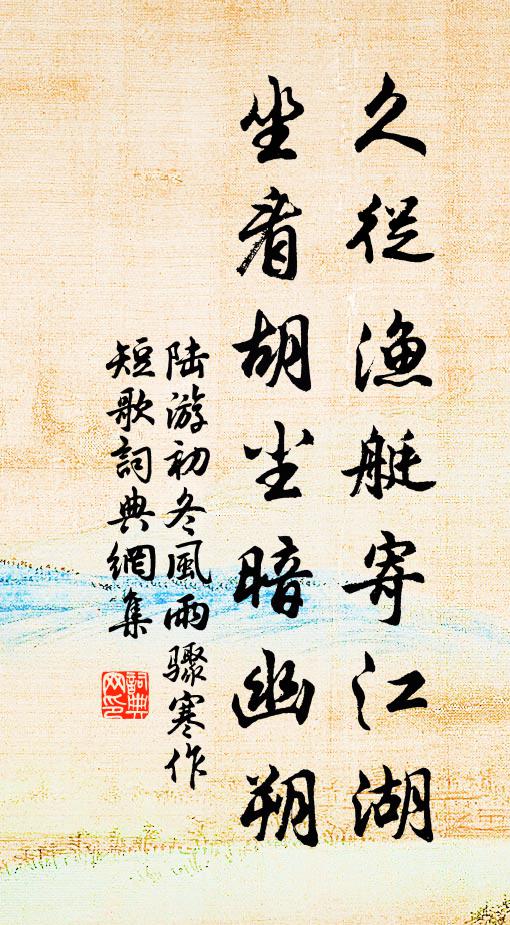 久從漁艇寄江湖
坐看胡尘暗幽朔
陆游初冬風雨驟寒作
短歌詞典網集
詞典
网印